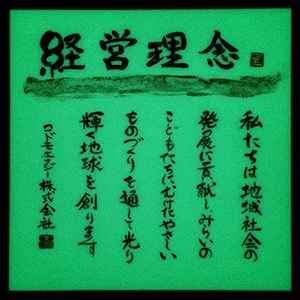 経営理念
私たちは地域社会の
発展に貢献しみらいの
こどもたちにむけたやさしい
ものづくりを通して光り
輝く地球を創ります
コドモエナジー株式会社